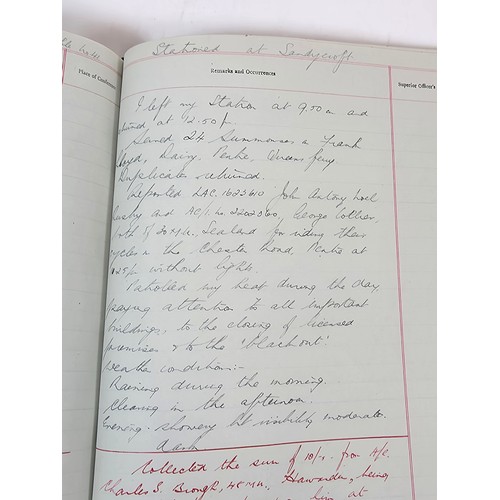 Stationed at Sandycroft
Place of
Remarks and Occurrences
Superior Officer's
I left my Station at 9.00 am and
returned at 12.50 p
Served 24 Summonses
Dairy, Queensferry.
Duplicates returned.
Reported LAC. 1625610 John Antony Noel
and AC/1. No 2202560, George Collier,
both of 30 M.U. Sealand for riding their
cycles on the Chester Road, Pentre at
without lights.
Patrolled my beat during the day
paying attention to all important
buildings, to the closing of licensed
premises & to the 'blackout'.
Weather conditions:-
Raining during the morning.
Clearing in the afternoon.
Evening - showery but visibility moderate.
Collected the sum of 10/- from A/C.
Charles S. Hawarden, being
at